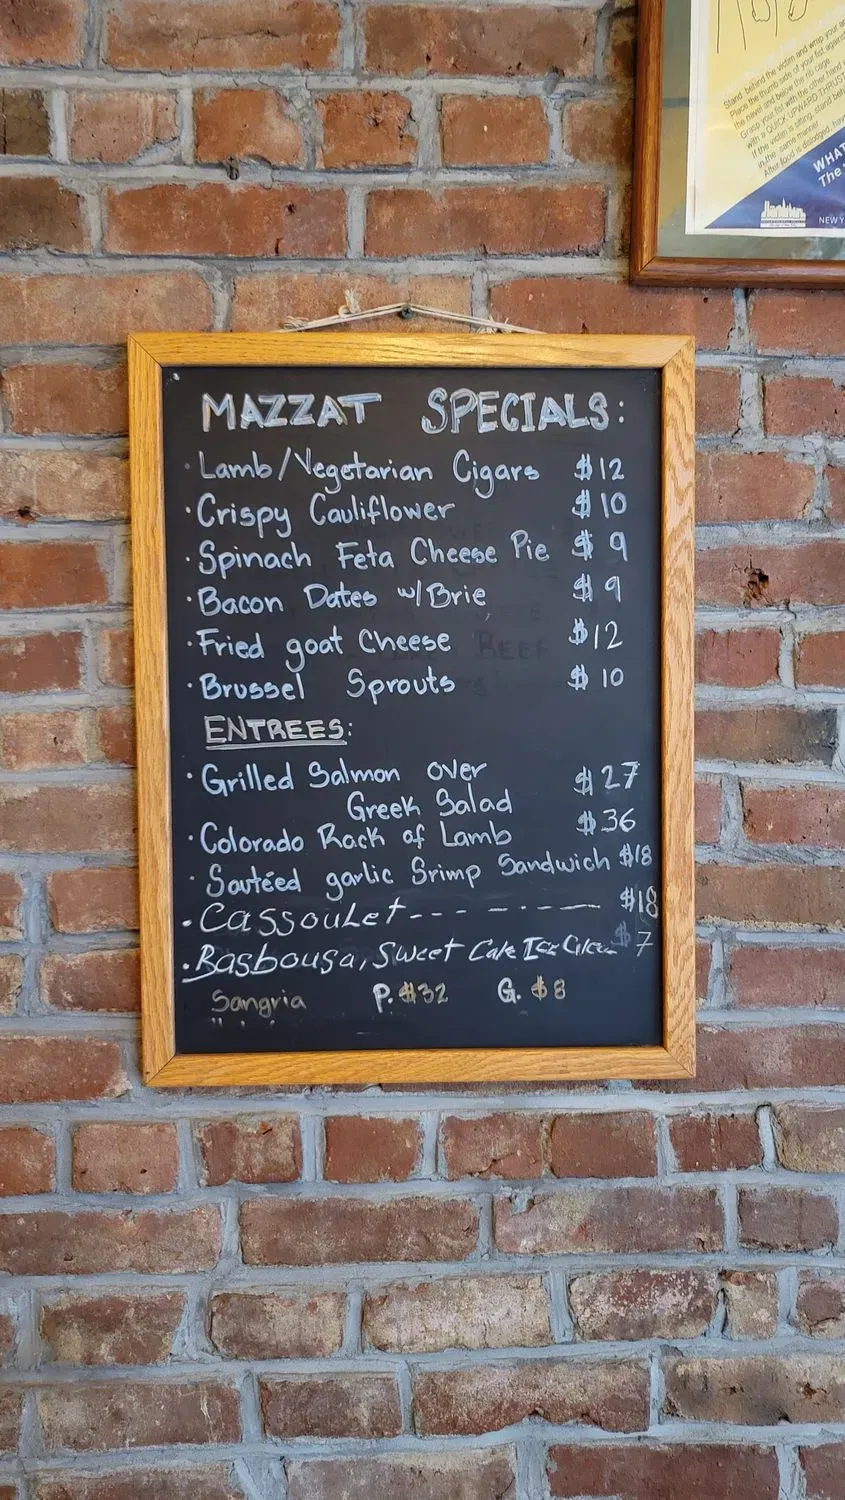 MAZZAT SPECIALS:
· Lamb/Vegetarian Cigars $12
· Crispy Cauliflower $10
· Spinach Feta Cheese Pie $ 9
· Bacon Dates w/Brie $ 9
· Fried goat Cheese $12
· Brussel Sprouts $ 10
ENTREES:
· Grilled Salmon over $ 27
Greek Salad
· Colorado Rack of Lamb $36
· Sautéed garlic Srimp Sandwich $18
· Cassoulet--- - ---- $18
· Basbousa, Sweet Cake Ice Cream $ 7
Sangria P. $32 G. $8
Stand behind the victim and wrap your
Place the thumb side of your fist against
the navel and below the rib cage
Grasp your fist with the other hand
with a QUICK UPWARD THRUST
If the victim is sitting, stand
in the same manner.
After food is dislodged, have
WHAT
The
NEW Y